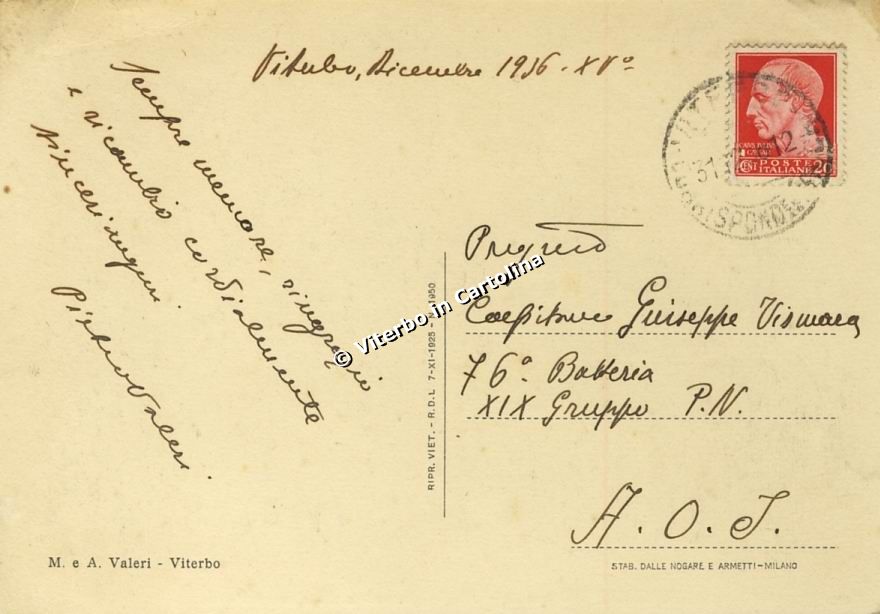 Viterbo, Dicembre 1936 - XV°
Sempre memore, ringrazio
e ricambio cordialmente
sinceri auguri
Pietro Valeri
CAIVS IVLIVS
CAESAR
CENT POSTE 20
ITALIANE
VITERBO
31 12
CORRISPONDENZE
Preg.mo
Capitano Giuseppe Vismara
76° Batteria
XIX Gruppo P.N.
A. O. I.
© Viterbo in Cartolina
RIPR. VIET. - R.D.L. 7-XI-1925 - N. 1950
M. e A. Valeri - Viterbo
STAB. DALLE NOGARE E ARMETTI-MILANO